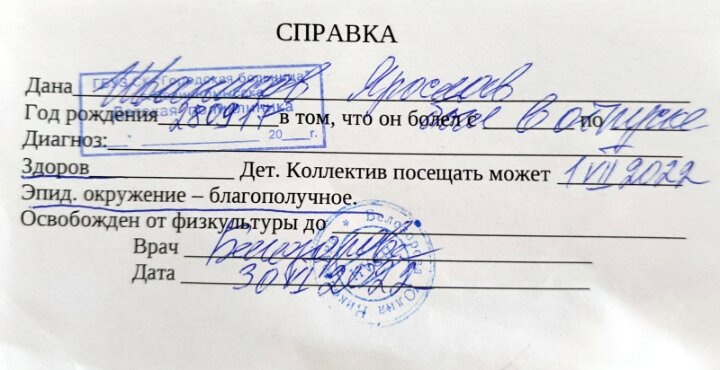 СПРАВКА
Дана Ярослав
ГБУЗ СК "Городская больница"
Детская поликлиника
" " 20 г.
Год рождения 280917 в том, что он болел с был в отпуске по
Диагноз:
Здоров Дет. Коллектив посещать может 1 VII 2022
Эпид. окружение – благополучное.
Освобожден от физкультуры до
Врач
Дата 30 VI 2022